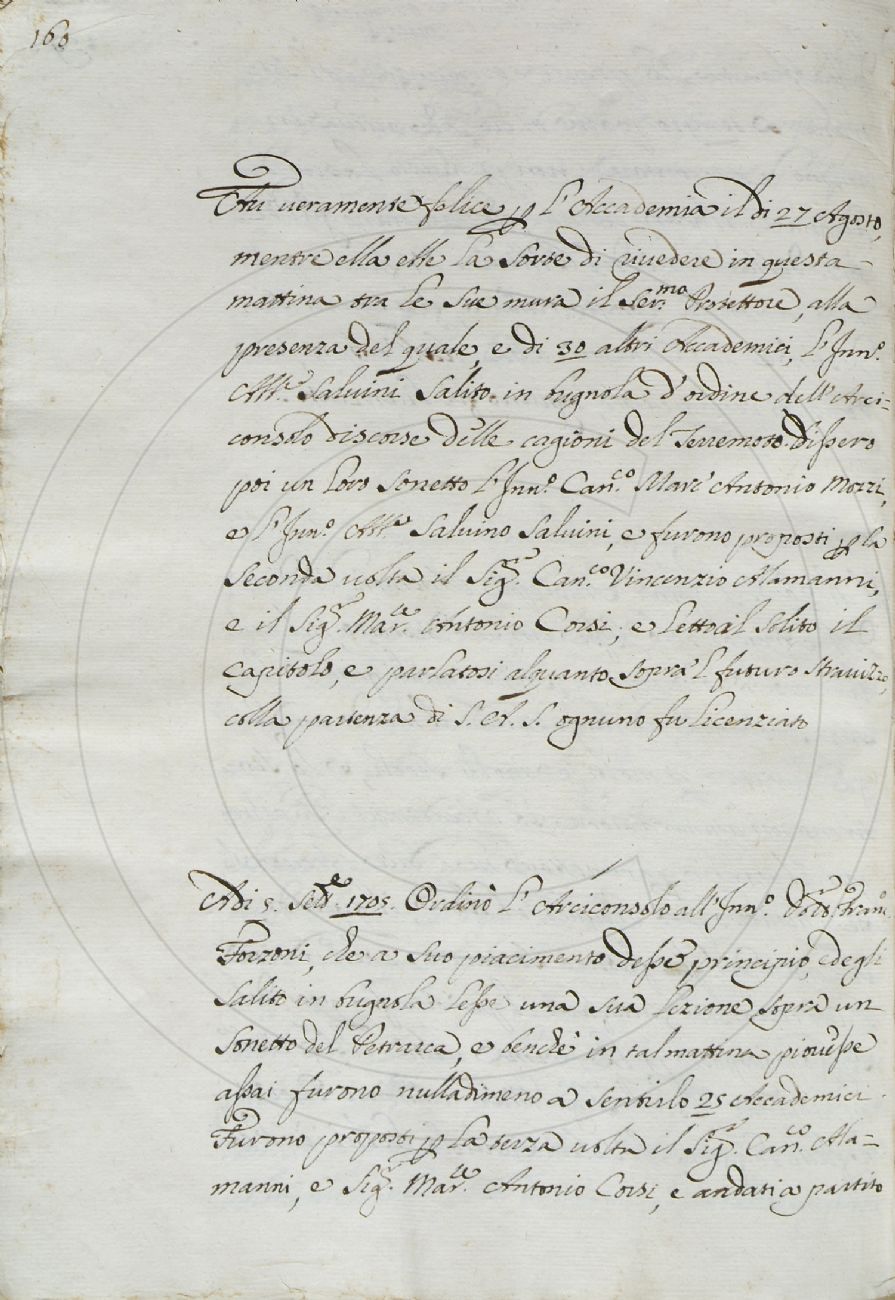 160
Fu veramente felice p l'Accademia il di 27 Agosto,
mentre ella ebbe la sorte di rivedere in questa
mattina tra le sue mura il Ser.mo Protettore, alla
presenza del quale, e di 30 altri Accademici, l'Inn.o
Ab.e Salvini salito in bugnola d'ordine dell'Arci-
consolo discorse delle cagioni del Terremoto. Dissero
poi un loro sonetto l'Inn.o Can.co Marc'Antonio Mozzi,
e l'Inn.o Ab.e Salvino Salvini, e furono proposti p la
seconda volta il Sig.r Can.co Vincenzio Alamanni,
e il Sig.r Mar.se Antonio Corsi, e letto al solito il
capitolo, e parlatosi alquanto sopra 'l futuro stravizzo,
colla partenza di S. A. S. ognuno fu licenziato
Adi 5. Sett.e 1705. Ordinò l'Arciconsolo all'Inn.o Dott.r Fran.co
Forzoni, che a suo piacimento desse principio, ed egli
salito in bugnola lesse una sua lezione sopra un
sonetto del Petrarca, e benche in tal mattina piovesse
assai furono nulladimeno a sentirlo 25 Accademici.
Furono proposti p la terza volta il Sig.r Can.co Ala=
manni, e Sig.r Mar.se Antonio Corsi, e andati a partito